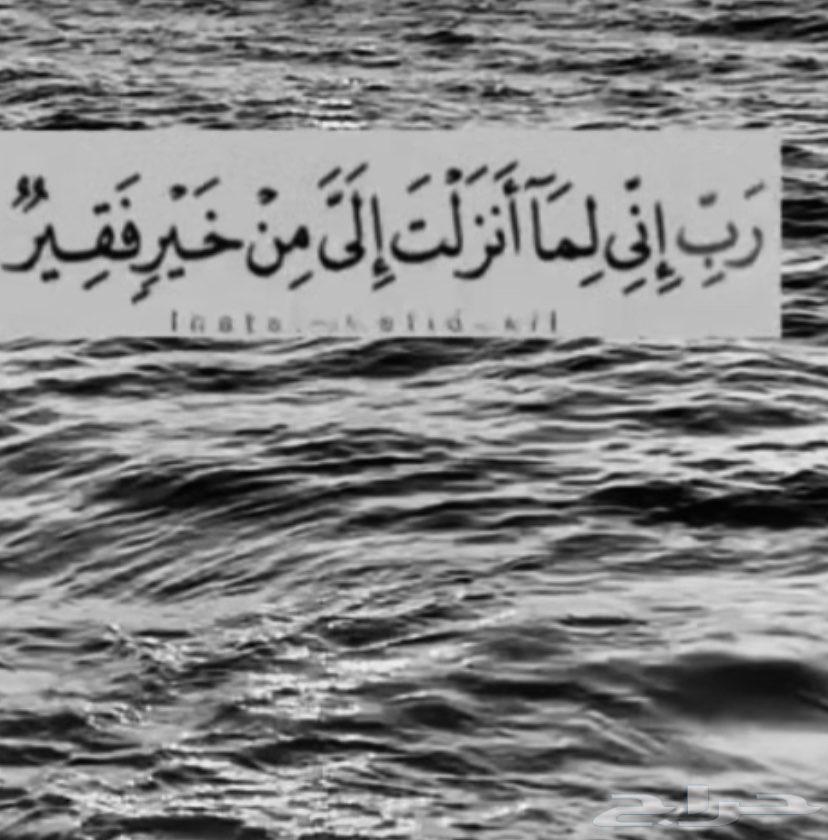 رَبِّ إِنِّي لِمَآ أَنزَلْتَ إِلَىَّ مِنْ خَيْرٍ فَقِيرٌ
حراج